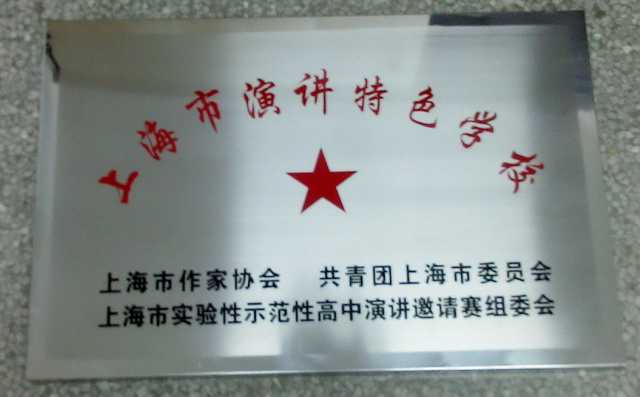 上海市演讲特色学校
上海市作家协会 共青团上海市委员会
上海市实验性示范性高中演讲邀请赛组委会